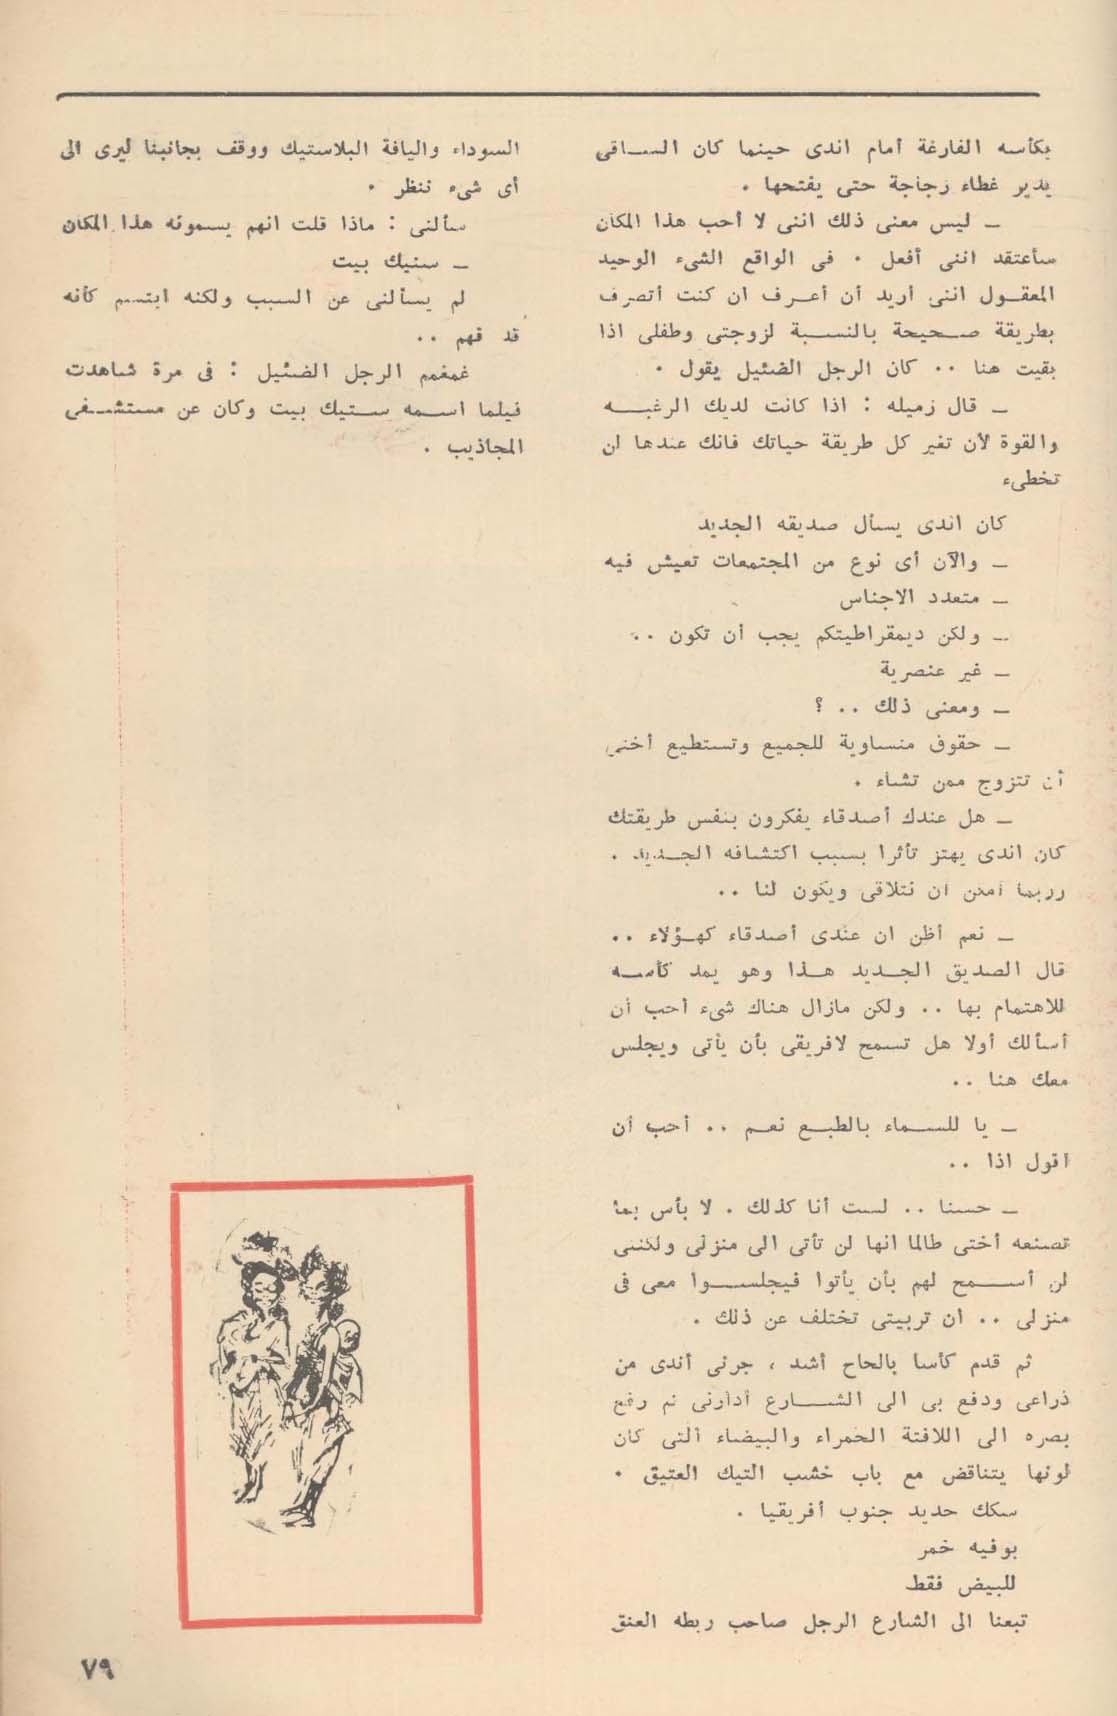 بكأسه الفارغة أمام اندى حينما كان الساقى
يدير غطاء زجاجة حتى يفتحها .
ـ ليس معنى ذلك اننى لا أحب هذا المكان
سأعتقد اننى أفعل . فى الواقع الشىء الوحيد
المعقول اننى أريد أن أعرف ان كنت أتصرف
بطريقة صحيحة بالنسبة لزوجتى وطفلى اذا
بقيت هنا .. كان الرجل الضئيل يقول .
ـ قال زميله : اذا كانت لديك الرغبه
والقوة لأن تغير كل طريقة حياتك فانك عندها لن
تخطىء
كان اندى يسأل صديقه الجديد
ـ والآن أى نوع من المجتمعات تعيش فيه
ـ متعدد الاجناس
ـ ولكن ديمقراطيتكم يجب أن تكون ..
ـ غير عنصرية
ـ ومعنى ذلك .. ؟
ـ حقوق متساوية للجميع وتستطيع أختى
أن تتزوج ممن تشاء .
ـ هل عندك أصدقاء يفكرون بنفس طريقتك
كان اندى يهتز تأثرا بسبب اكتشافه الجديد .
وربما أمكن ان نتلاقى ويكون لنا ..
ـ نعم أظن ان عندى أصدقاء كهؤلاء ..
قال الصديق الجديد هذا وهو يمد كأسه
للاهتمام بها .. ولكن مازال هناك شىء أحب أن
أسألك أولا هل تسمح لافريقى بأن يأتى ويجلس
معك هنا ..
ـ يا للسماء بالطبع نعم .. أحب أن
أقول اذا ..
ـ حسنا .. لست أنا كذلك . لا بأس بما
تصنعه أختى طالما انها لن تأتى الى منزلى ولكننى
لن أسمح لهم بأن يأتوا فيجلسوا معى فى
منزلى .. ان تربيتى تختلف عن ذلك .
ثم قدم كأسا بالحاح أشد ، جرنى أندى من
ذراعى ودفع بى الى الشارع أدارنى ثم رفع
بصره الى اللافتة الحمراء والبيضاء التى كان
لونها يتناقض مع باب خشب التيك العتيق .
سكك حديد جنوب أفريقيا .
بوفيه خمر
للبيض فقط
تبعنا الى الشارع الرجل صاحب ربطه العنق
السوداء والياقة البلاستيك ووقف بجانبنا ليرى الى
أى شىء ننظر .
سألنى : ماذا قلت انهم يسمونه هذا المكان
ـ سنيك بيت
لم يسألنى عن السبب ولكنه ابتسم كأنه
قد فهم ..
غمغم الرجل الضئيل : فى مرة شاهدت
فيلما اسمه ستيك بيت وكان عن مستشفى
المجاذيب .
٧٩